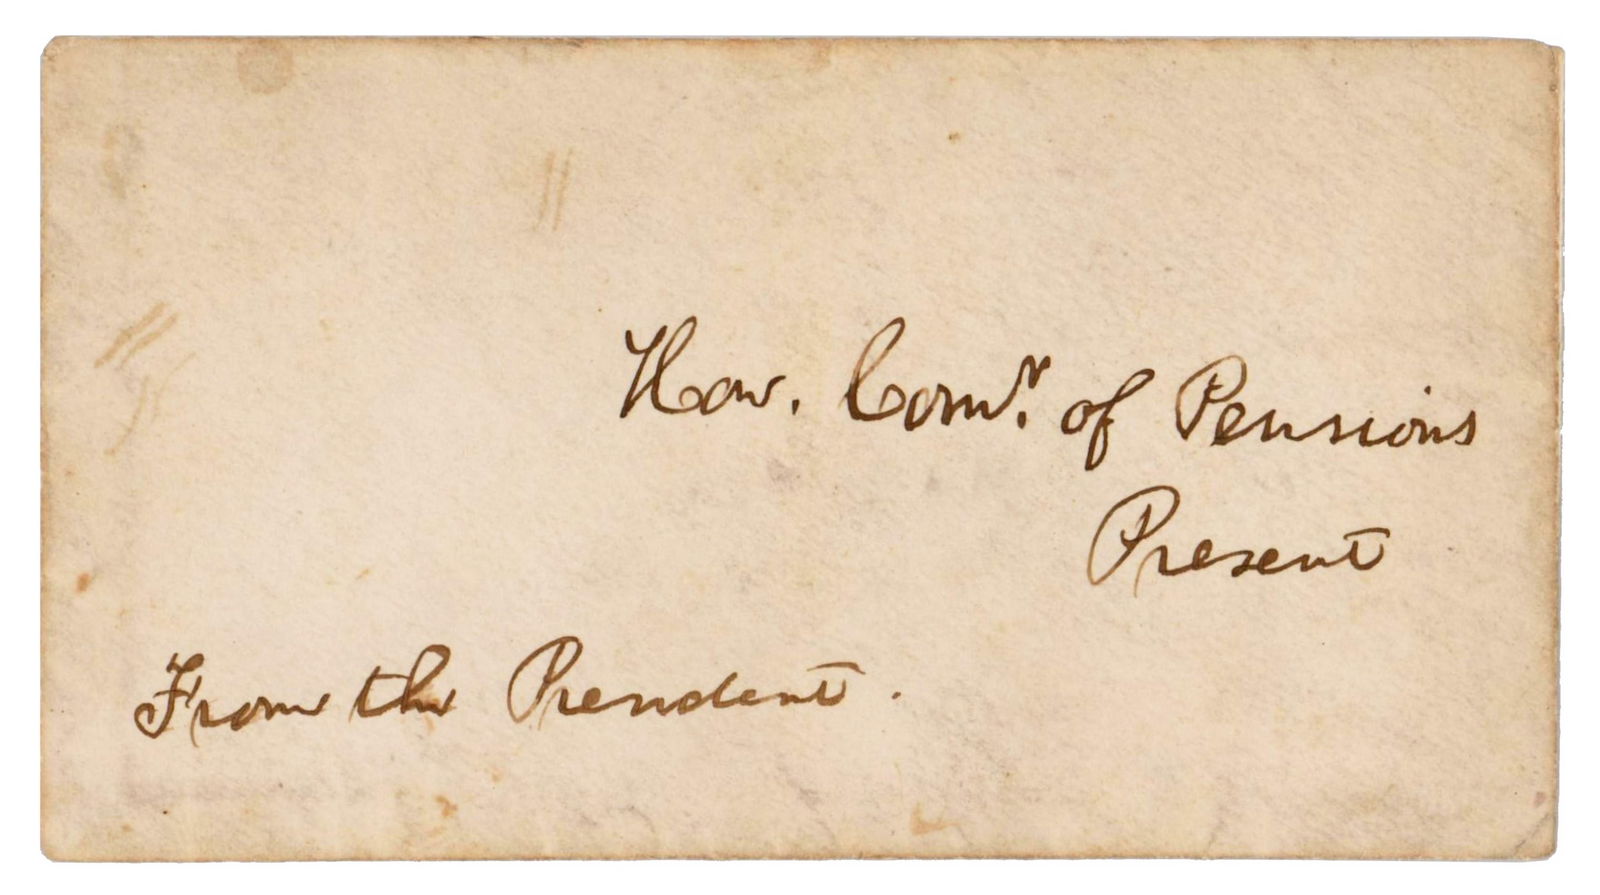 Hon. Comr. of Pensions
Present
From the President.